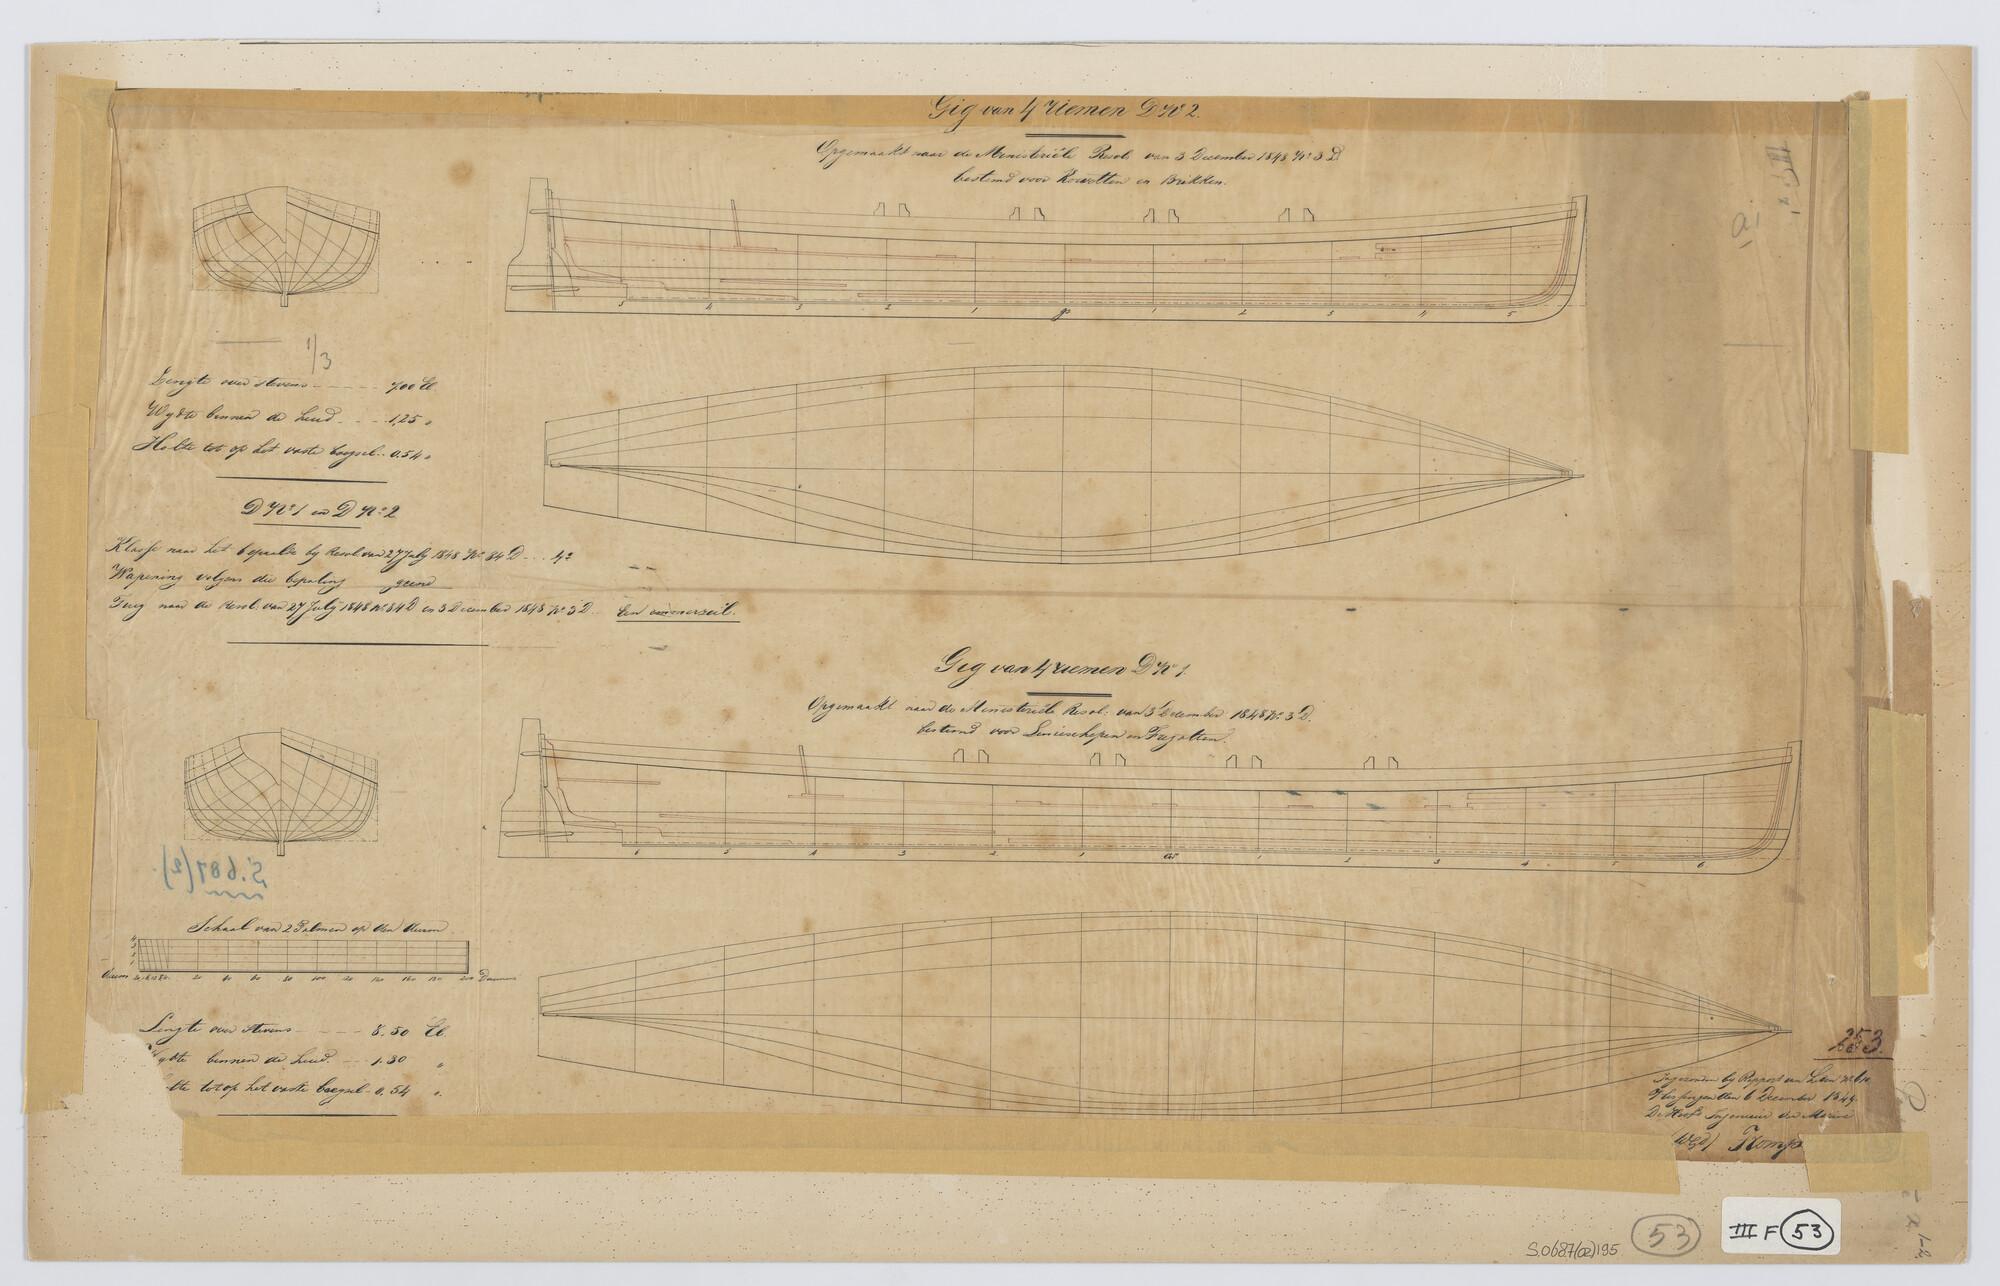 Gig van 4 riemen D No 2.
Opgemaakt naar de Ministeriële Resol. van 3 December 1848 No 3 D
bestemd voor Korvetten en Brikken.
1/3
Lengte over stevens 7,00 El.
Wydte binnen de huid 1,25 "
Holte tot op het vaste boeysel 0.54 "
D No 1 en D No 2
Klasse naar het bepaalde by Resol. van 27 July 1848 No 84 D 4e
Wapening volgens die bepaling geene
Tuig naar de Resol. van 27 July 1848 No 84 D en 3 December 1848 No 3 D. Een emmerzeil.
5 4 3 2 1 1 2 3 4 5
Gig van 4 riemen D No 1.
Opgemaakt naar de Ministeriële Resol. van 3 December 1848 No 3 D.
bestemd voor Linieschepen en Fregatten.
6 5 4 3 2 1 1 2 3 4 5 6
S.687(2).
Schaal van 2 Palmen op den Duim
20 40 60 80 100 120 140 160 180 200 Duimen
Lengte over stevens 8,50 El.
Wydte binnen de huid 1.80 "
Holte tot op het vaste boeysel 0,54 ".
253.
Ingezonden by Rapport van
Vlissingen den 6 December 1849.
De Hoofd Ingenieur der Marine
(Wgd) Tromp
S.0687(02)195
53
III F 53